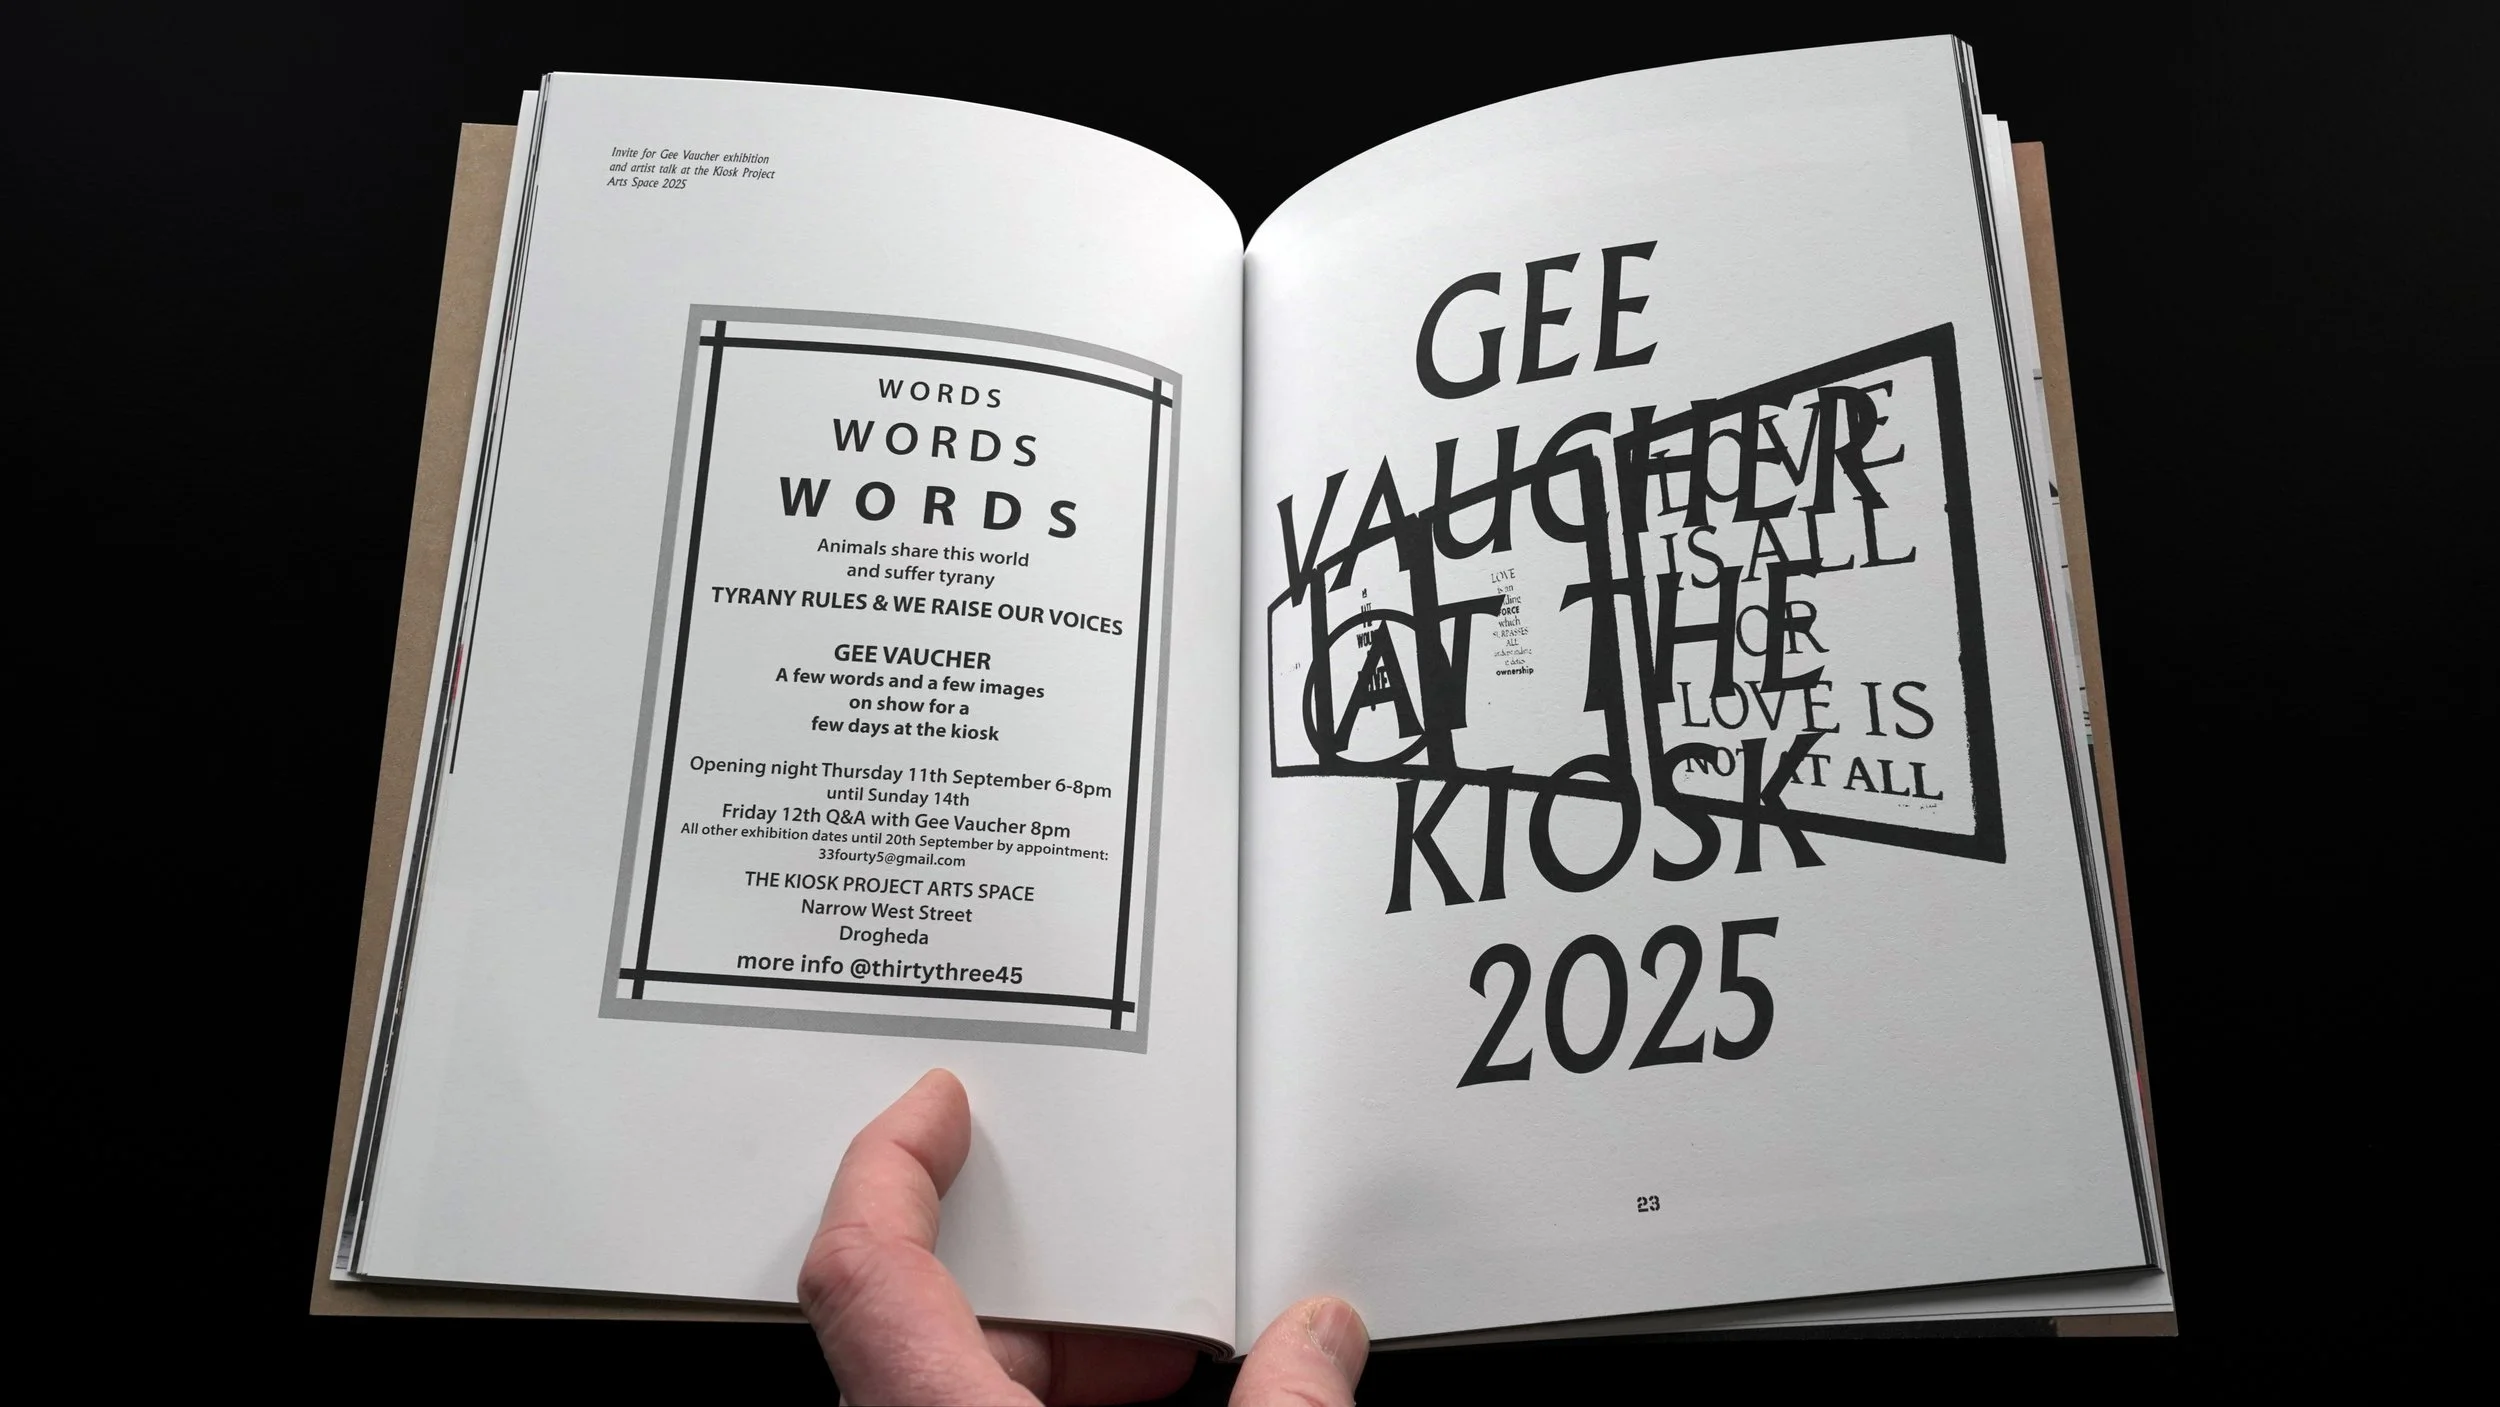 Invite for Gee Vaucher exhibition
and artist talk at the Kiosk Project
Arts Space 2025
WORDS
WORDS
WORDS
Animals share this world
and suffer tyrany
TYRANY RULES & WE RAISE OUR VOICES
GEE VAUCHER
A few words and a few images
on show for a
few days at the kiosk
Opening night Thursday 11th September 6-8pm
until Sunday 14th
Friday 12th Q&A with Gee Vaucher 8pm
All other exhibition dates until 20th September by appointment:
33fourty5@gmail.com
THE KIOSK PROJECT ARTS SPACE
Narrow West Street
Drogheda
more info @thirtythree45
GEE
VAUCHER
AT THE
KIOSK
2025
LOVE
IS ALL
OR
LOVE IS
NOT AT ALL
LOVE
FORCE
which
SURPASSES
ALL
ownership
23